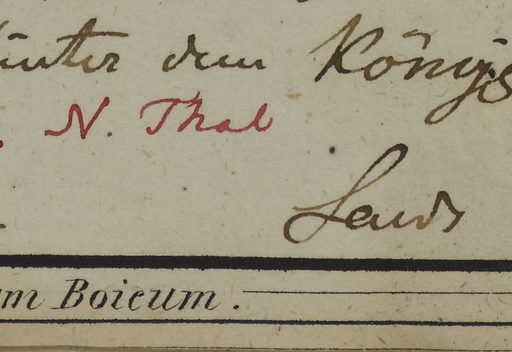 unter dem Königs
N. Thal
um Boicum.